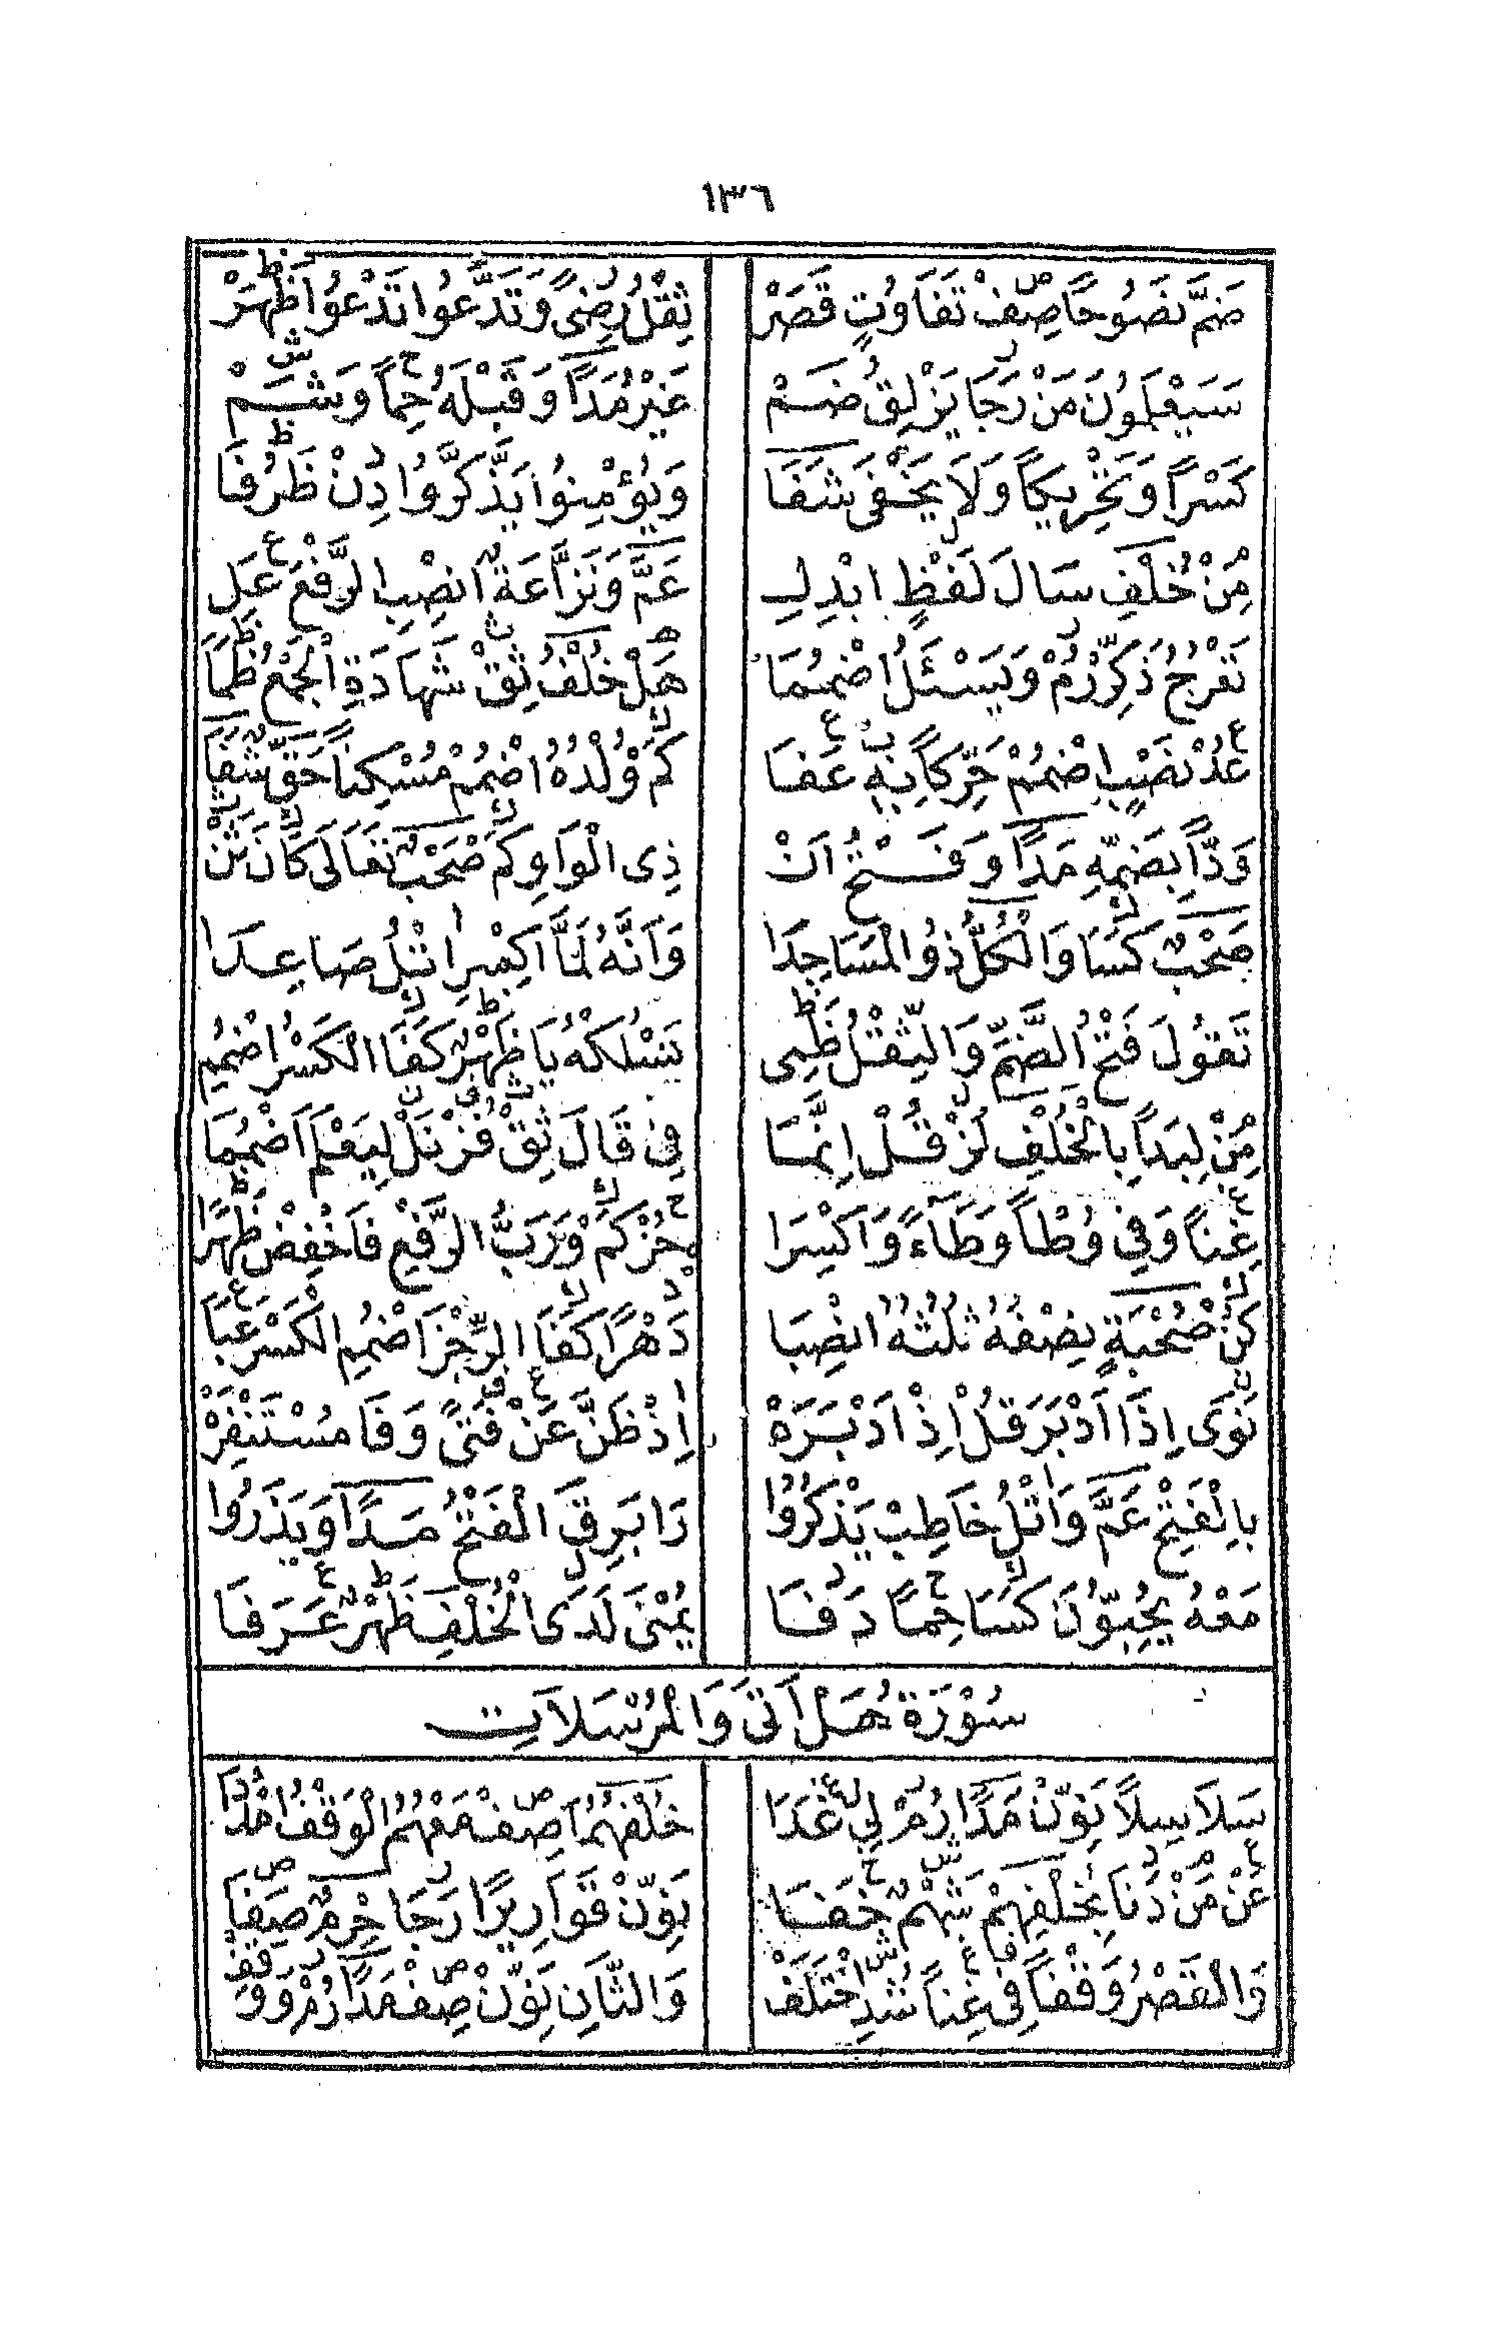 ١٣٦
ضَمَّ نَصُوحًا صِفْ تَفَاوُتٍ قَصَرْ ثِقْلُ رِضًى وَتَدَّعُوا تَدْعُوا ظَهَرْ
سَيَعْلَمُونَ مَنْ رَجَا يَزْلِقُ ضَمْ غَيْرُ مَدًا وَقَبْلَهُ حِمًا وَشَمْ
كَسْرًا وَتَحْرِيكًا وَلَا يَخْفَى شَفَا وَيُؤْمِنُوا يَذَّكَّرُوا دِنْ ظَرُفَا
مِنْ خُلْفِ سَالَ لَفْظٍ ابْدِلِ عَمَّ وَنَزَّاعَةً انْصِبِ الرَّفْعَ عَلِ
تَعْرُجُ ذَكِّرْ رُمْ وَيَسْئَلُ اضْمُمَا هَلْ خُلْفُ ثِقْ شَهَادَةِ الْجَمْعُ ظَمَا
عُدْ نَصْبِ اضْمُمْ حَرِّكًا بِهِ عَفَا كَمْ وُلْدُهُ اضْمُمْ مُسْكِنًا حَقٌّ شَفَا
وَدًّا بِضَمِّهِ مَدًا وَفَتْحُ انْ ذِى الْوَاوِ كَمْ صَحْبٌ تَعَالَى كَانَ ثَنْ
صَحْبٌ كَسَا وَالْكُلُّ ذُو الْمَسَاجِدَا وَاَنَّهُ لَمَّا اكِسْرِ اتْلُ صَاعِدَا
تَقُولَ فَتْحُ الضَّمِّ وَالثِّقْلُ ظَمِى يَسْلُكْهُ يَا ظَهْرٌ كَفَا الْكَسْرُ اضْمُمِ
مِنْ لِبَدًا بِالْخُلْفِ لُزْ قُلْ اِنَّمَا فِى قَالَ ثِقْ فُزْ نَلْ لِيَعْلَمَ اضْمُمَا
غِنًا وَفِى وُطْأً وِطَآءً وَاكْسِرَا حُزْ كَمْ وَرَبُّ الرَّفْعِ فَاخْفِضْ ظَهَرَا
كُنْ صُحْبَةٍ نِصْفَهُ ثُلُثَهُ انْصِبَا دَهْرًا كَفَا الرِّجْزَ اضْمُمِ الْكَسْرَ عَبَا
نَوَى اِذَا اَدْبَرَ قُلْ اِذْ اَدْبَرَهْ اِذْ ظَنَّ عَنْ فَتًى وَفَا مُسْتَنْفِرَهْ
بِالْفَتْحِ عَمَّ وَاتْلُ خَاطِبْ يَذْكُرُوا رَا بَرِقَ الْفَتْحُ مَدًا وَيَذَرُوا
مَعْهُ يُحِبُّونَ كَسَا حِمًا دَفَا يُمْنَى لَدَى الْخُلْفِ ظَهْرٌ عَرَفَا
سُوْرَةُ هَلْ اَتَى وَالْمُرْسَلَاتِ
سَلَاسِلًا نَوِّنْ مَدًا رُمْ لِى غَدَا خُلْفُهُمَا صِفْ مَعْهُمُ الْوَقْفُ امْدُدَا
عَنْ مَنْ دَنَا بِخُلْفِهِمْ شَهْمٌ حَفَا نَوِّنْ قَوَارِيْرًا رَجَا حِرْمٌ صَفَا
وَالْقَصْرُ وَقْفًا فِى غِنًا شُدِ اخْتَلَفْ وَالثَّانِ نَوِّنْ صِفْ مَدًا رُمْ وَوَقَفْ